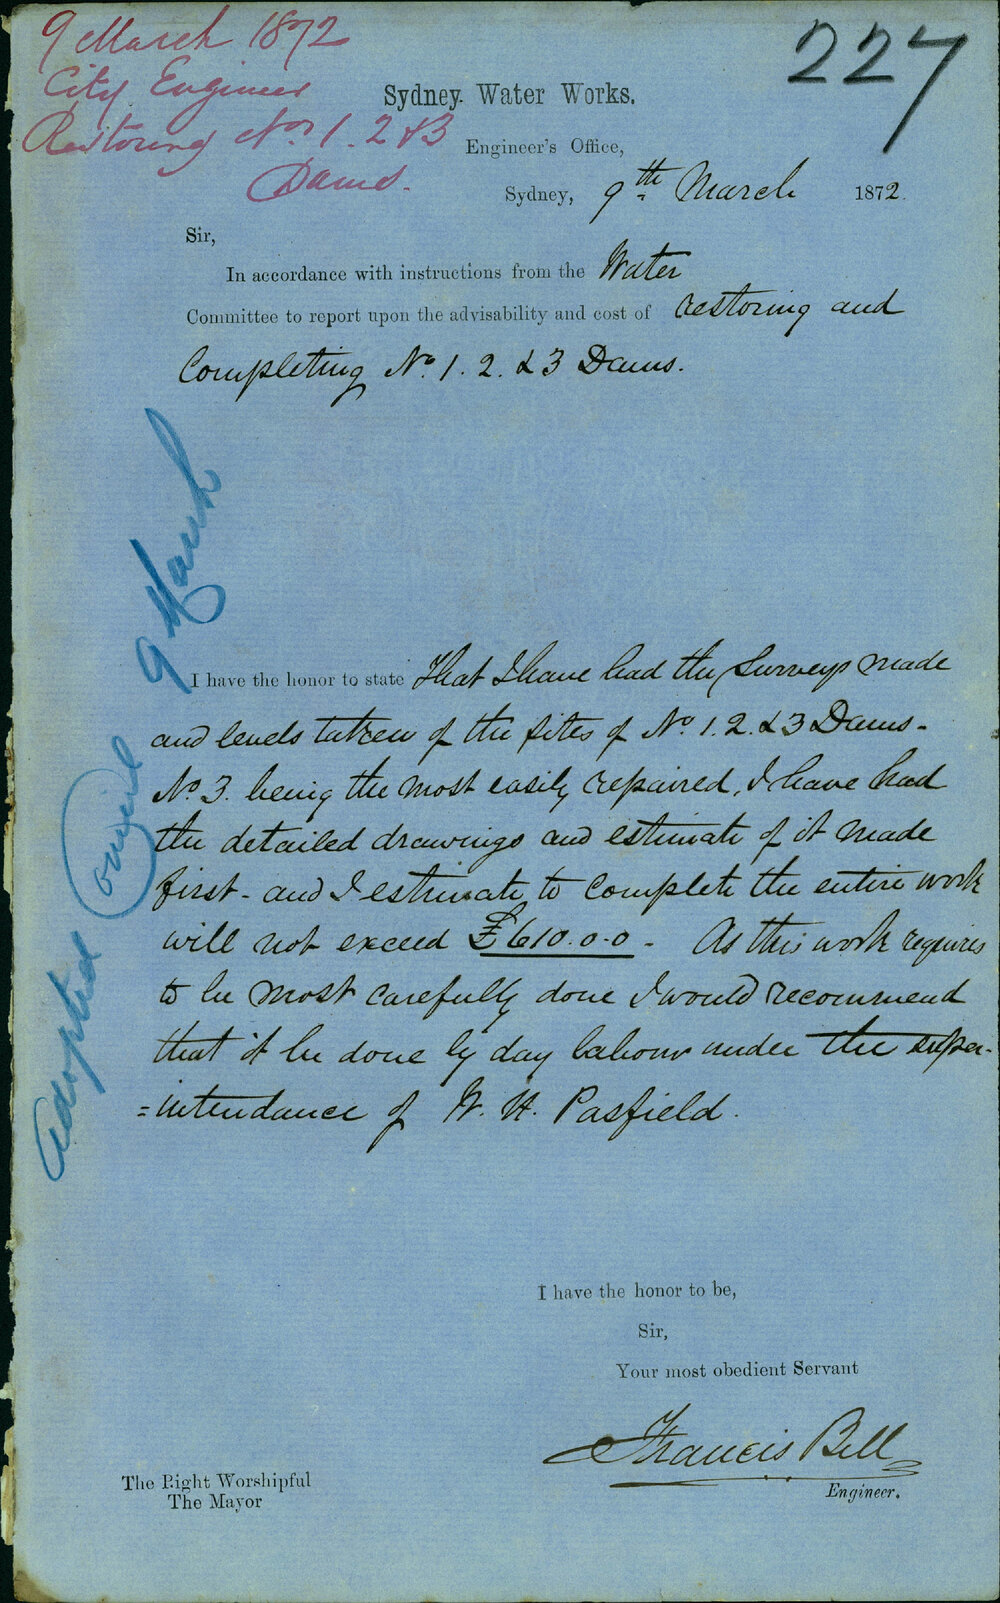 9 March 1872
City Engineer
Restoring Nos 1. 2 & 3
Dams.
227
Sydney Water Works.
Engineer's Office,
Sydney, 9th March 1872.
Sir,
In accordance with instructions from the Water
Committee to report upon the advisability and cost of restoring and
Completing No. 1. 2. & 3 Dams.
9 March
I have the honor to state that I have had the Surveys made
and levels taken of the sites of No. 1. 2. & 3 Dams -
No. 3. being the most easily repaired, I have had
the detailed drawings and estimate of it made
first - and I estimate to complete the entire work
will not exceed £610.0.0 - As this work requires
to be most carefully done I would recommend
that it be done by day labour under the super-
=intendance of W. H. Pasfield.
Adopted Council
I have the honor to be,
Sir,
Your most obedient Servant
Francis Bell
Engineer.
The Right Worshipful
The Mayor